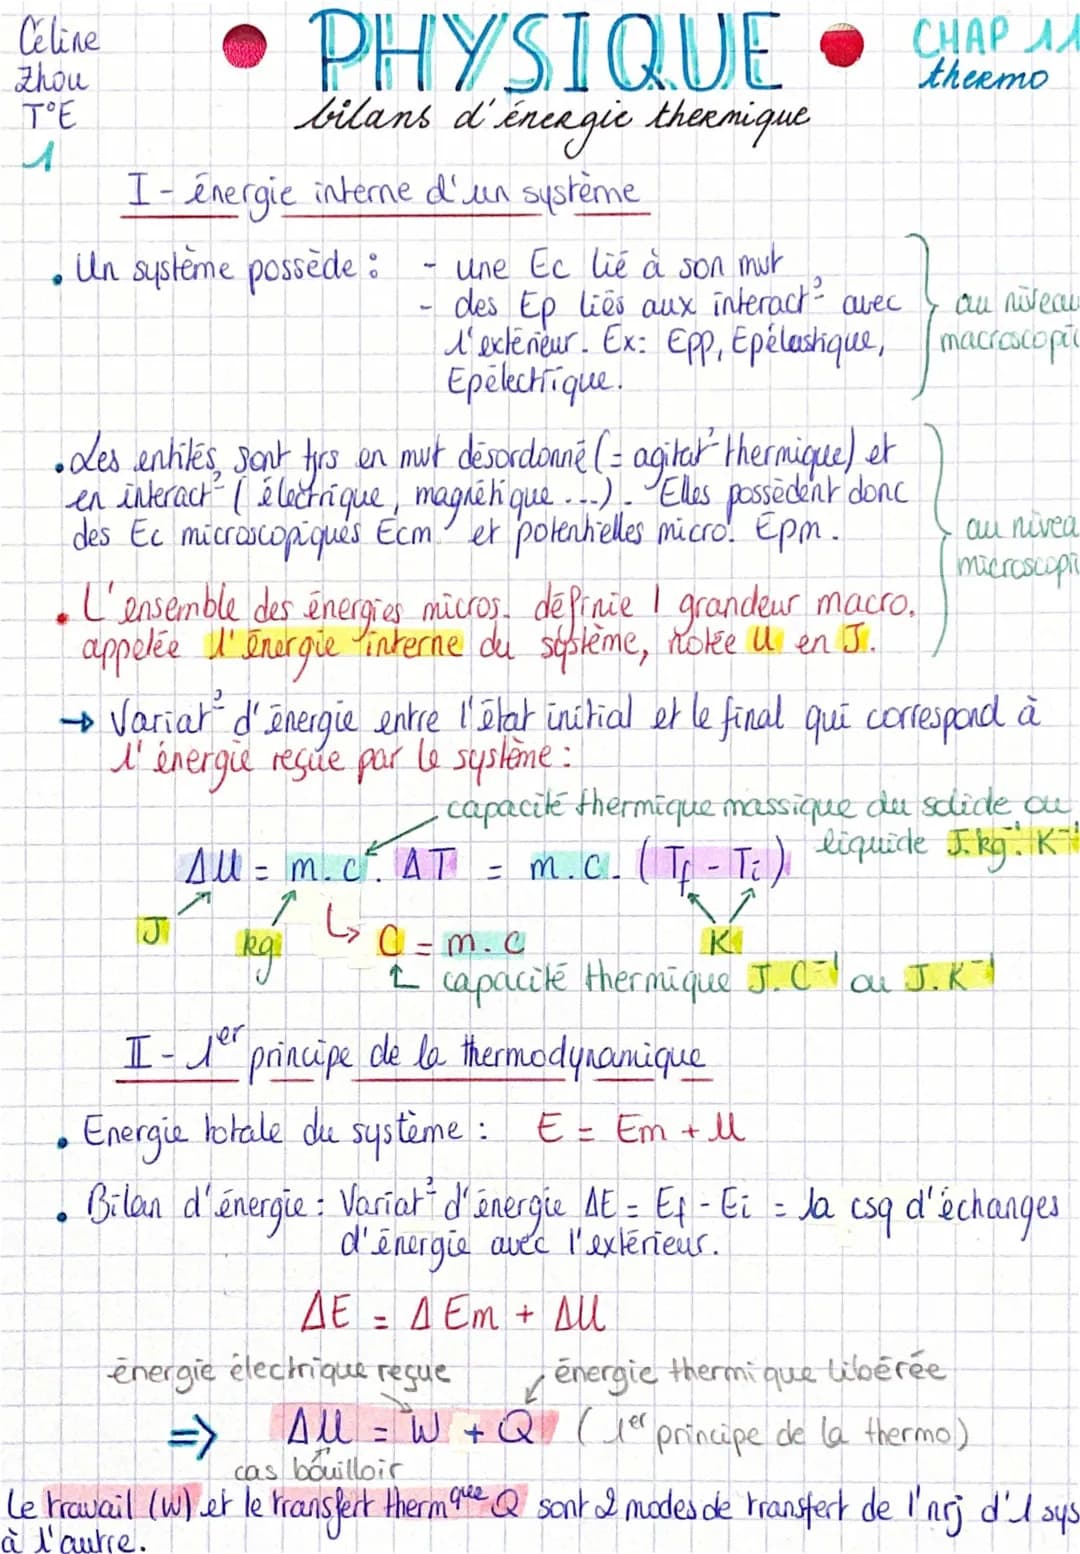 Céline
Zhou
T°E
1
PHYSIQUE
CHAP 11
thermo
bilans d'énergie thermique
I - énergie interne d'un système
• Un système possède : - une Ec lié à son mvt
- des Ep liés aux interact° avec
l'extérieur. Ex: Epp, Epélastique,
Epélectrique.
au niveau
macroscopic
• Les entités sont tjrs en mvt désordonné (= agitat° thermique) et
en interact° (électrique, magnétique ...). Elles possèdent donc
des Ec microscopiques Ecm et potentielles micro. Epm.
au nivea
microscopi
• L'ensemble des énergies micros. définie 1 grandeur macro,
appelée l'énergie interne du système, notée U en J.
→ Variat° d'énergie entre l'état initial et le final qui correspond à
l'énergie reçue par le système :
capacité thermique massique du solide ou
liquide J.kg⁻¹.K⁻¹
ΔU = m.c. ΔT = m.c. (Tf - Ti)
J
kg
K
↳ C = m.c
capacité thermique J.C⁻¹ ou J.K⁻¹
II - 1er principe de la thermodynamique
• Energie totale du système : E = Em + U
• Bilan d'énergie : Variat° d'énergie ΔE = Ef - Ei = la csq d'échanges
d'énergie avec l'extérieur.
ΔE = ΔEm + ΔU
énergie électrique reçue
énergie thermique libérée
⇒ ΔU = W + Q (1er principe de la thermo)
cas bouilloir
Le travail (W) et le transfert thermque Q sont 2 modes de transfert de l'nrj d'1 sys
à l'autre.